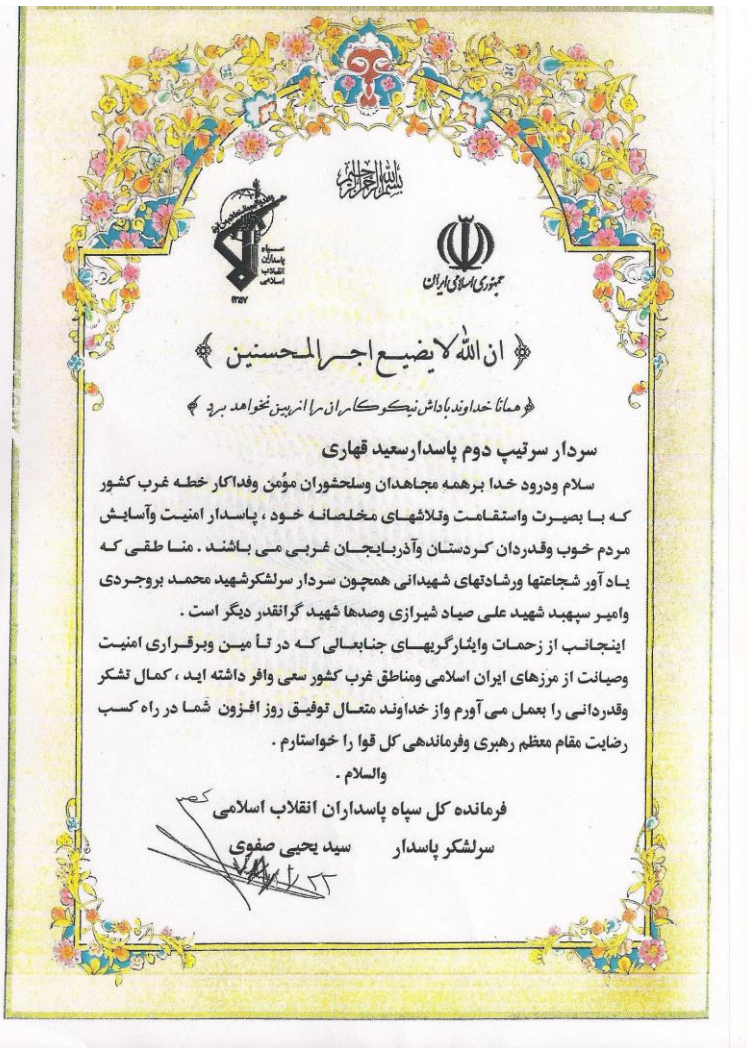 بسم الله الرحمن الرحیم
جمهوری اسلامی ایران
سپاه
پاسداران
انقلاب
اسلامی
۱۳۵۷
﴿ ان الله لا یضیـع اجـر المـحسنین ﴾
﴿ همانا خداوند پاداش نیکوکاران را از بین نخواهد برد ﴾
سردار سرتیپ دوم پاسدارسعید قهاری
سلام ودرود خدا برهمه مجاهدان وسلحشوران مؤمن وفداکار خطه غرب کشور
که با بصیرت واستقامت وتلاشهای مخلصانه خود ، پاسدار امنیت وآسایش
مردم خوب وقدردان کردستان وآذربایجان غربی می باشند . منا طقی که
یاد آور شجاعتها ورشادتهای شهیدانی همچون سردار سرلشکرشهید محمد بروجردی
وامیر سپهبد شهید علی صیاد شیرازی وصدها شهید گرانقدر دیگر است .
اینجانب از زحمات وایثارگریهای جنابعالی که در تأ مین وبرقراری امنیت
وصیانت از مرزهای ایران اسلامی ومناطق غرب کشور سعی وافر داشته اید ، کمال تشکر
وقدردانی را بعمل می آورم واز خداوند متعال توفیق روز افزون شما در راه کسب
رضایت مقام معظم رهبری وفرماندهی کل قوا را خواستارم .
والسلام .
فرمانده کل سپاه پاسداران انقلاب اسلامی
سرلشکر پاسدار سید یحیی صفوی